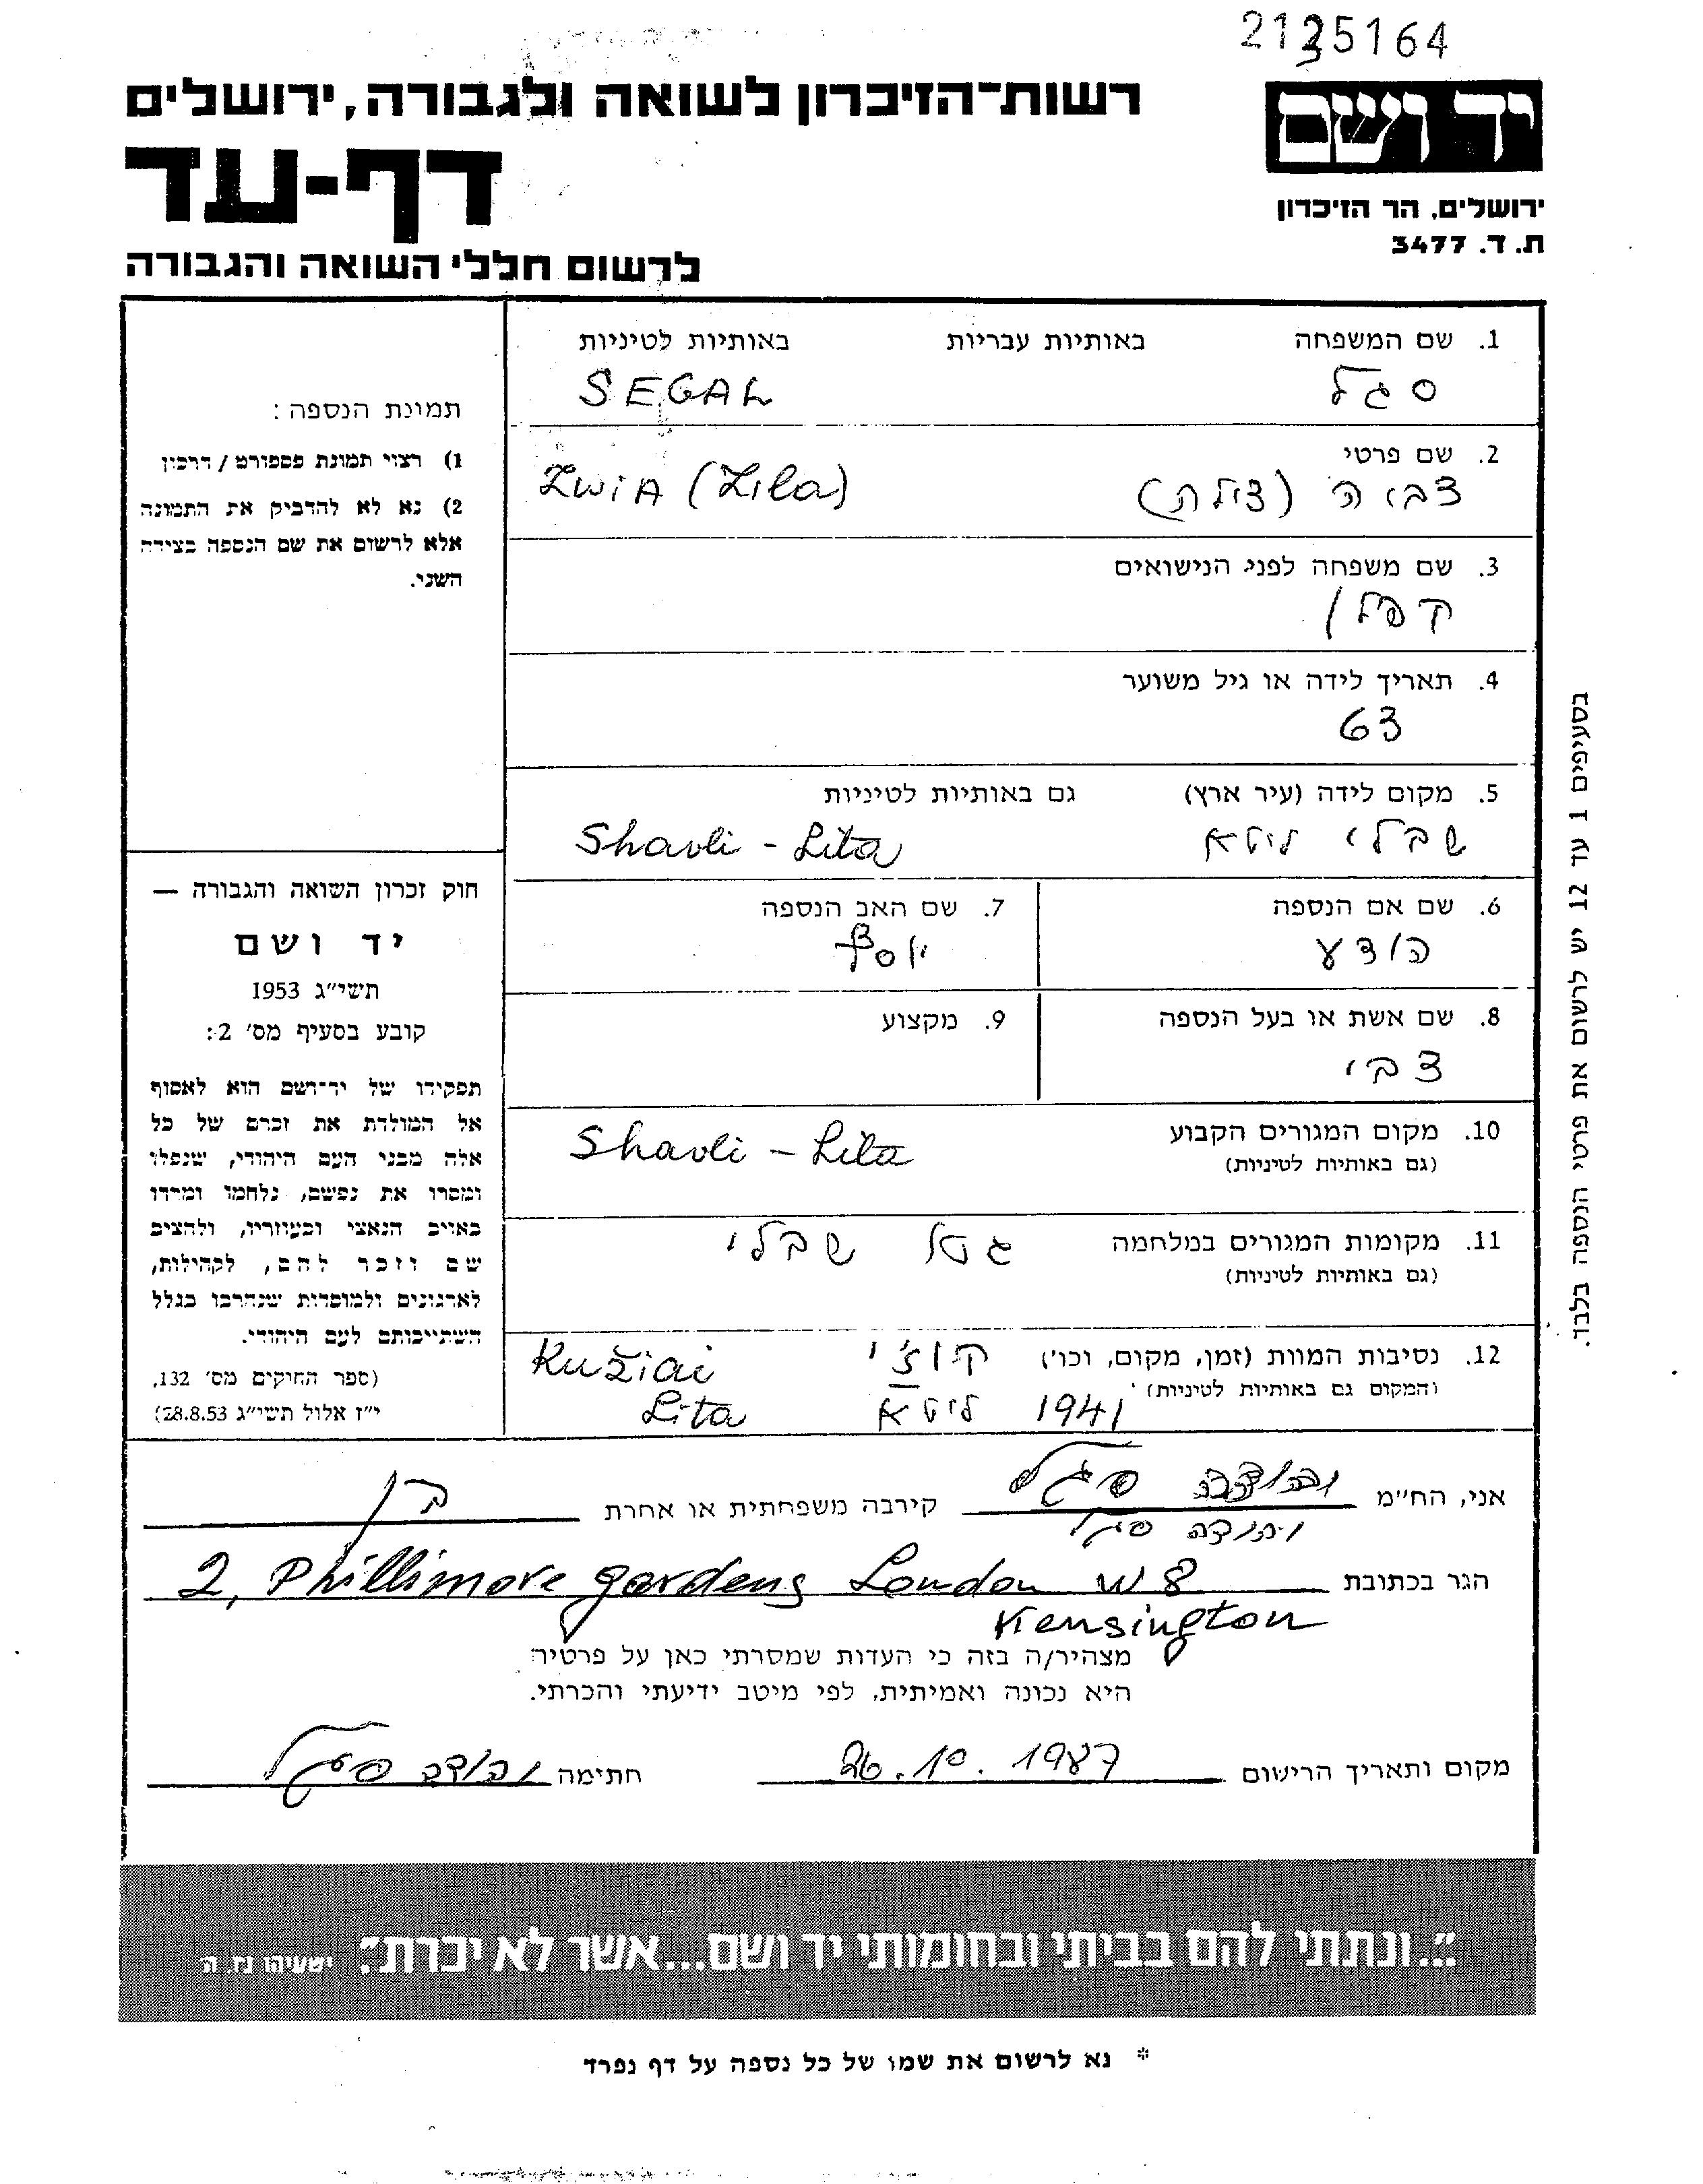 2125164
רשות־הזיכרון לשואה ולגבורה, ירושלים
יד ושם
דף-עד
ירושלים, הר הזיכרון
ת. ד. 3477
לרשום חללי השואה והגבורה
1. שם המשפחה באותיות עבריות באותיות לטיניות
סגל SEGAL
2. שם פרטי
צביה (צילה) ZwiA (Zila)
3. שם משפחה לפני הנישואים
קפלן
4. תאריך לידה או גיל משוער
63
5. מקום לידה (עיר ארץ) גם באותיות לטיניות
שבלי ליטא Shavli - Lita
6. שם אם הנספה
7. שם האב הנספה
יוסף
8. שם אשת או בעל הנספה
צבי
9. מקצוע
10. מקום המגורים הקבוע
(גם באותיות לטיניות)
Shavli - Lita
11. מקומות המגורים במלחמה
(גם באותיות לטיניות)
גטו שבלי
12. נסיבות המוות (זמן, מקום, וכו׳) קוז'י Kužiai
(המקום גם באותיות לטיניות)
1941 ליטא Lita
תמונת הנספה:
1) רצוי תמונת פספורט / דרכון
2) נא לא להדביק את התמונה
אלא לרשום את שם הנספה בצידה
השני.
חוק זכרון השואה והגבורה —
יד ושם
תשי״ג 1953
קובע בסעיף מס׳ 2:
תפקידו של יד־ושם הוא לאסוף
אל המולדת את זכרם של כל
אלה מבני העם היהודי, שנפלו
ומסרו את נפשם, נלחמו ומרדו
באויב הנאצי ובעוזריו, ולהציב
שם וזכר להם, לקהילות,
לארגונים ולמוסדות שנחרבו בגלל
השתייכותם לעם היהודי.
(ספר החוקים מס׳ 132,
י״ז אלול תשי״ג 28.8.53)
בסעיפים 1 עד 12 יש לרשום את פרטי הנספה בלבד.
אני, הח״מ יהודה סגל קירבה משפחתית או אחרת בן
יהודה סגל
הגר בכתובת 2, Phillimore gardens London W8
Kensington
מצהיר/ה בזה כי העדות שמסרתי כאן על פרטיה
היא נכונה ואמיתית, לפי מיטב ידיעתי והכרתי.
מקום ותאריך הרישום 26.10.1987 חתימה יהודה סגל
״...ונתתי להם בביתי ובחומותי יד ושם...אשר לא יכרת״. ישעיהו נו. ה
* נא לרשום את שמו של כל נספה על דף נפרד